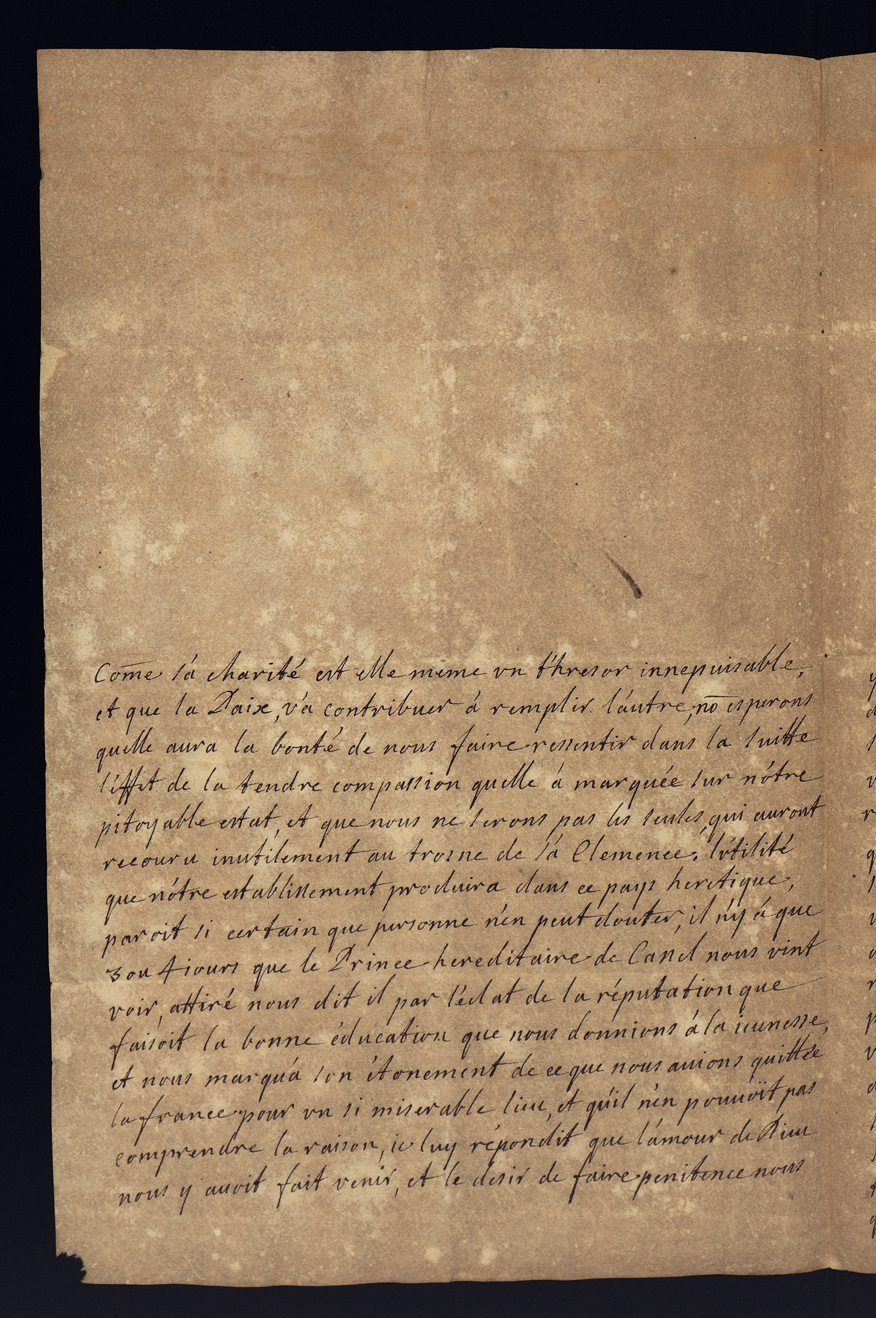 Com̄e sá charité est elle meme vn thresor innepuisable,
et que la Paix, vá contribuer á remplir láutre, no̅ esperons
quelle aura la bonté de nous faire ressentir dans la suitte
léffet de la tendre compassion quelle á marquée sur nótre
pitoyable estat, et que nous ne serons pas les seules, qui auront
recouru inutilement au trosne de sá Clemence. lútilité
que nótre establissement produira dans ce pays heretique,
paroit si certain que personne n'en peut douter, il n'y á que
3 ou 4 iours que le Prince hereditaire de Cassel nous vint
voir, attiré nous dit il par l'éclat de la réputation que
faisoit la bonne éducation que nous donnions á la ieunesse,
et nous marquá son étonement de ce que nous auions quittée
la france pour vn si miserable lieu, et qu'il n'en pouuoit pas
comprendre la raison, ie luy répondit que lámour de Dieu
nous y auoit fait venir, et le désir de faire penitence nous